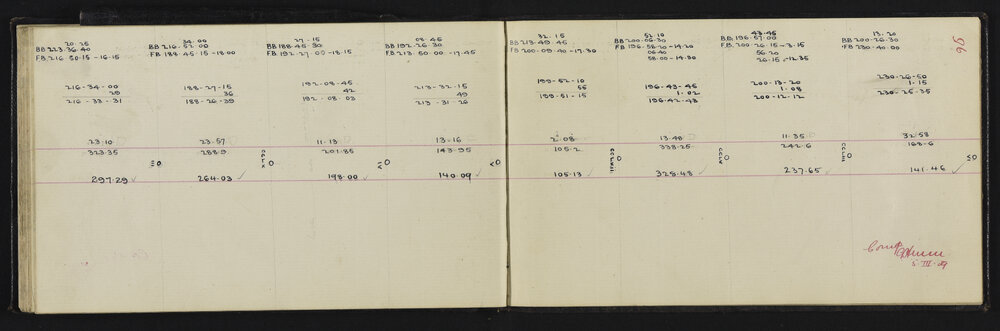 20.25
BB 223.36.40
FB. 216.50.15 -16.15
216-34-00
29
216-33-31
23.10
323.35
297.29 ✓
34.00
BB 216.52.00
FB 188.45.15 -18.00
188-27-15
36
188-26-39
23.57
288.9
264.03 ✓
27-15
BB 188.45-30
FB 192-27-00 -18.15
192-08-45
42
192-08-03
11-13
201.85
198.00 ✓
08.45
BB 192-26-30
FB. 213.50.00 -17.45
213-32-15
49
213-31-26
13-16
143.95
140.09 ✓
95
32.15
BB 213.49.45
FB 200.09.40 -17.30
199-52-10
55
199-51-15
2.08
105.2
105.13 ✓
52.10
BB 200.06.30
FB 196.58.20 -14.20
06.40
58.00 -14.30
196-43-45
1.02
196-42-43
13.40
338.25
328.48 ✓
43.45
BB 196.57.00
FB. 200.26.15 -13.15
56.20
26-15 -12.35
200-13-20
1.08
200-12-12
11.35
242.6
237.65 ✓
13.20
BB 200.26.30
FB 230.40.00
230-26-50
1.15
230-25-35
32.58
168.6
141.46 ✓
5.III.29